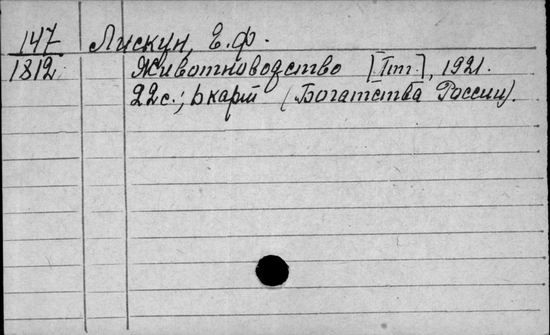 147 Лискун, Е.Ф.
1812 Животноводство [Пт.], 1921.
22с.; карт (Богатства России).